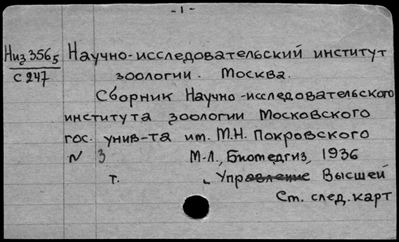 - 1 -
Низ 3565
С 247
Научно-исследовательский институт
зоологии. Москва.
Сборник Научно-исследовательского
института зоологии Московского
гос. унив-та им. М.Н. Покровского
N 3 М-Л., Биомедгиз, 1936
т. Управление Высшей
См. след. карт